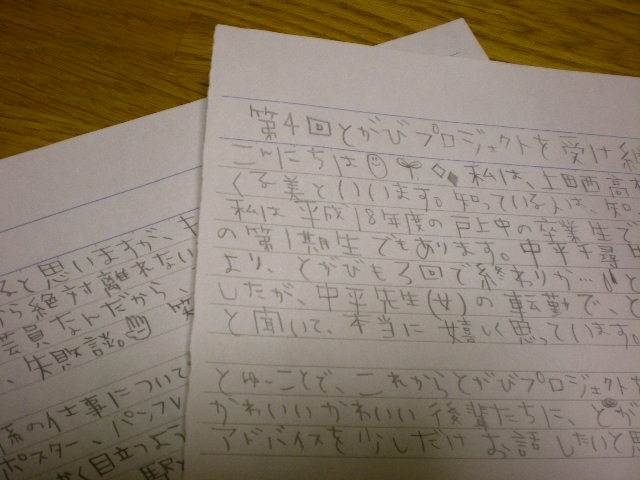 第4回とがびプロジェクトを受け継
こんにちは 私は、上田西高
くる美といいます。知っている人は、知
私は平成18年度の戸上中の卒業生で
の第1期生でもあります。中平千尋
より、とがびも3回で終わりか…と
したが、中平先生(女)の転勤で、と
と聞いて、本当に嬉しく思っています。
とゆーことで、これからとがびプロジェクトを
かわいいかわいい後輩たちに、とが
アドバイスを少しだけお話したいと思
ると思いますが、
から絶対離れない
芸員なんだから、
、失敗談。笑
係の仕事について
ポスター、パンフレ
く目立つよう